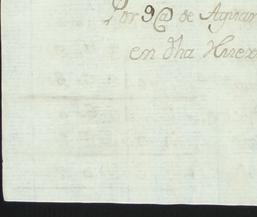 Por 9@ de Aguar
en dha Huex